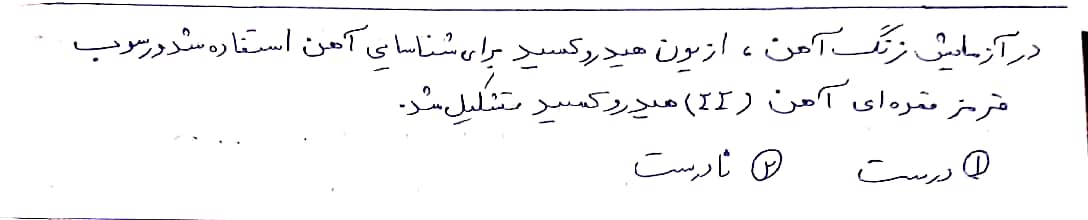 در آزمایش زنگ آهن ، از یون هیدروکسید برای شناسایی آهن استفاده شد و رسوب
قرمز قهوه‌ای آهن (II) هیدروکسید تشکیل شد.
① درست ② نادرست